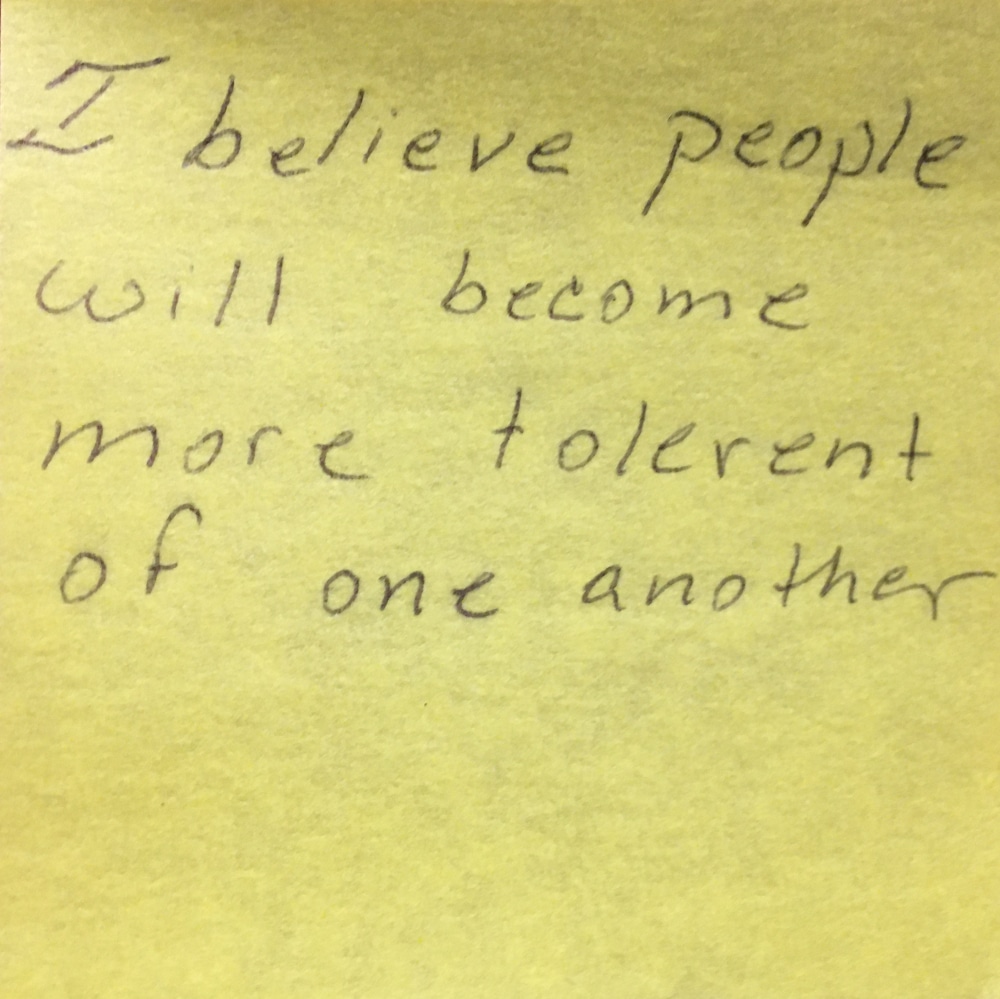 I believe people
will become
more tolerent
of one another